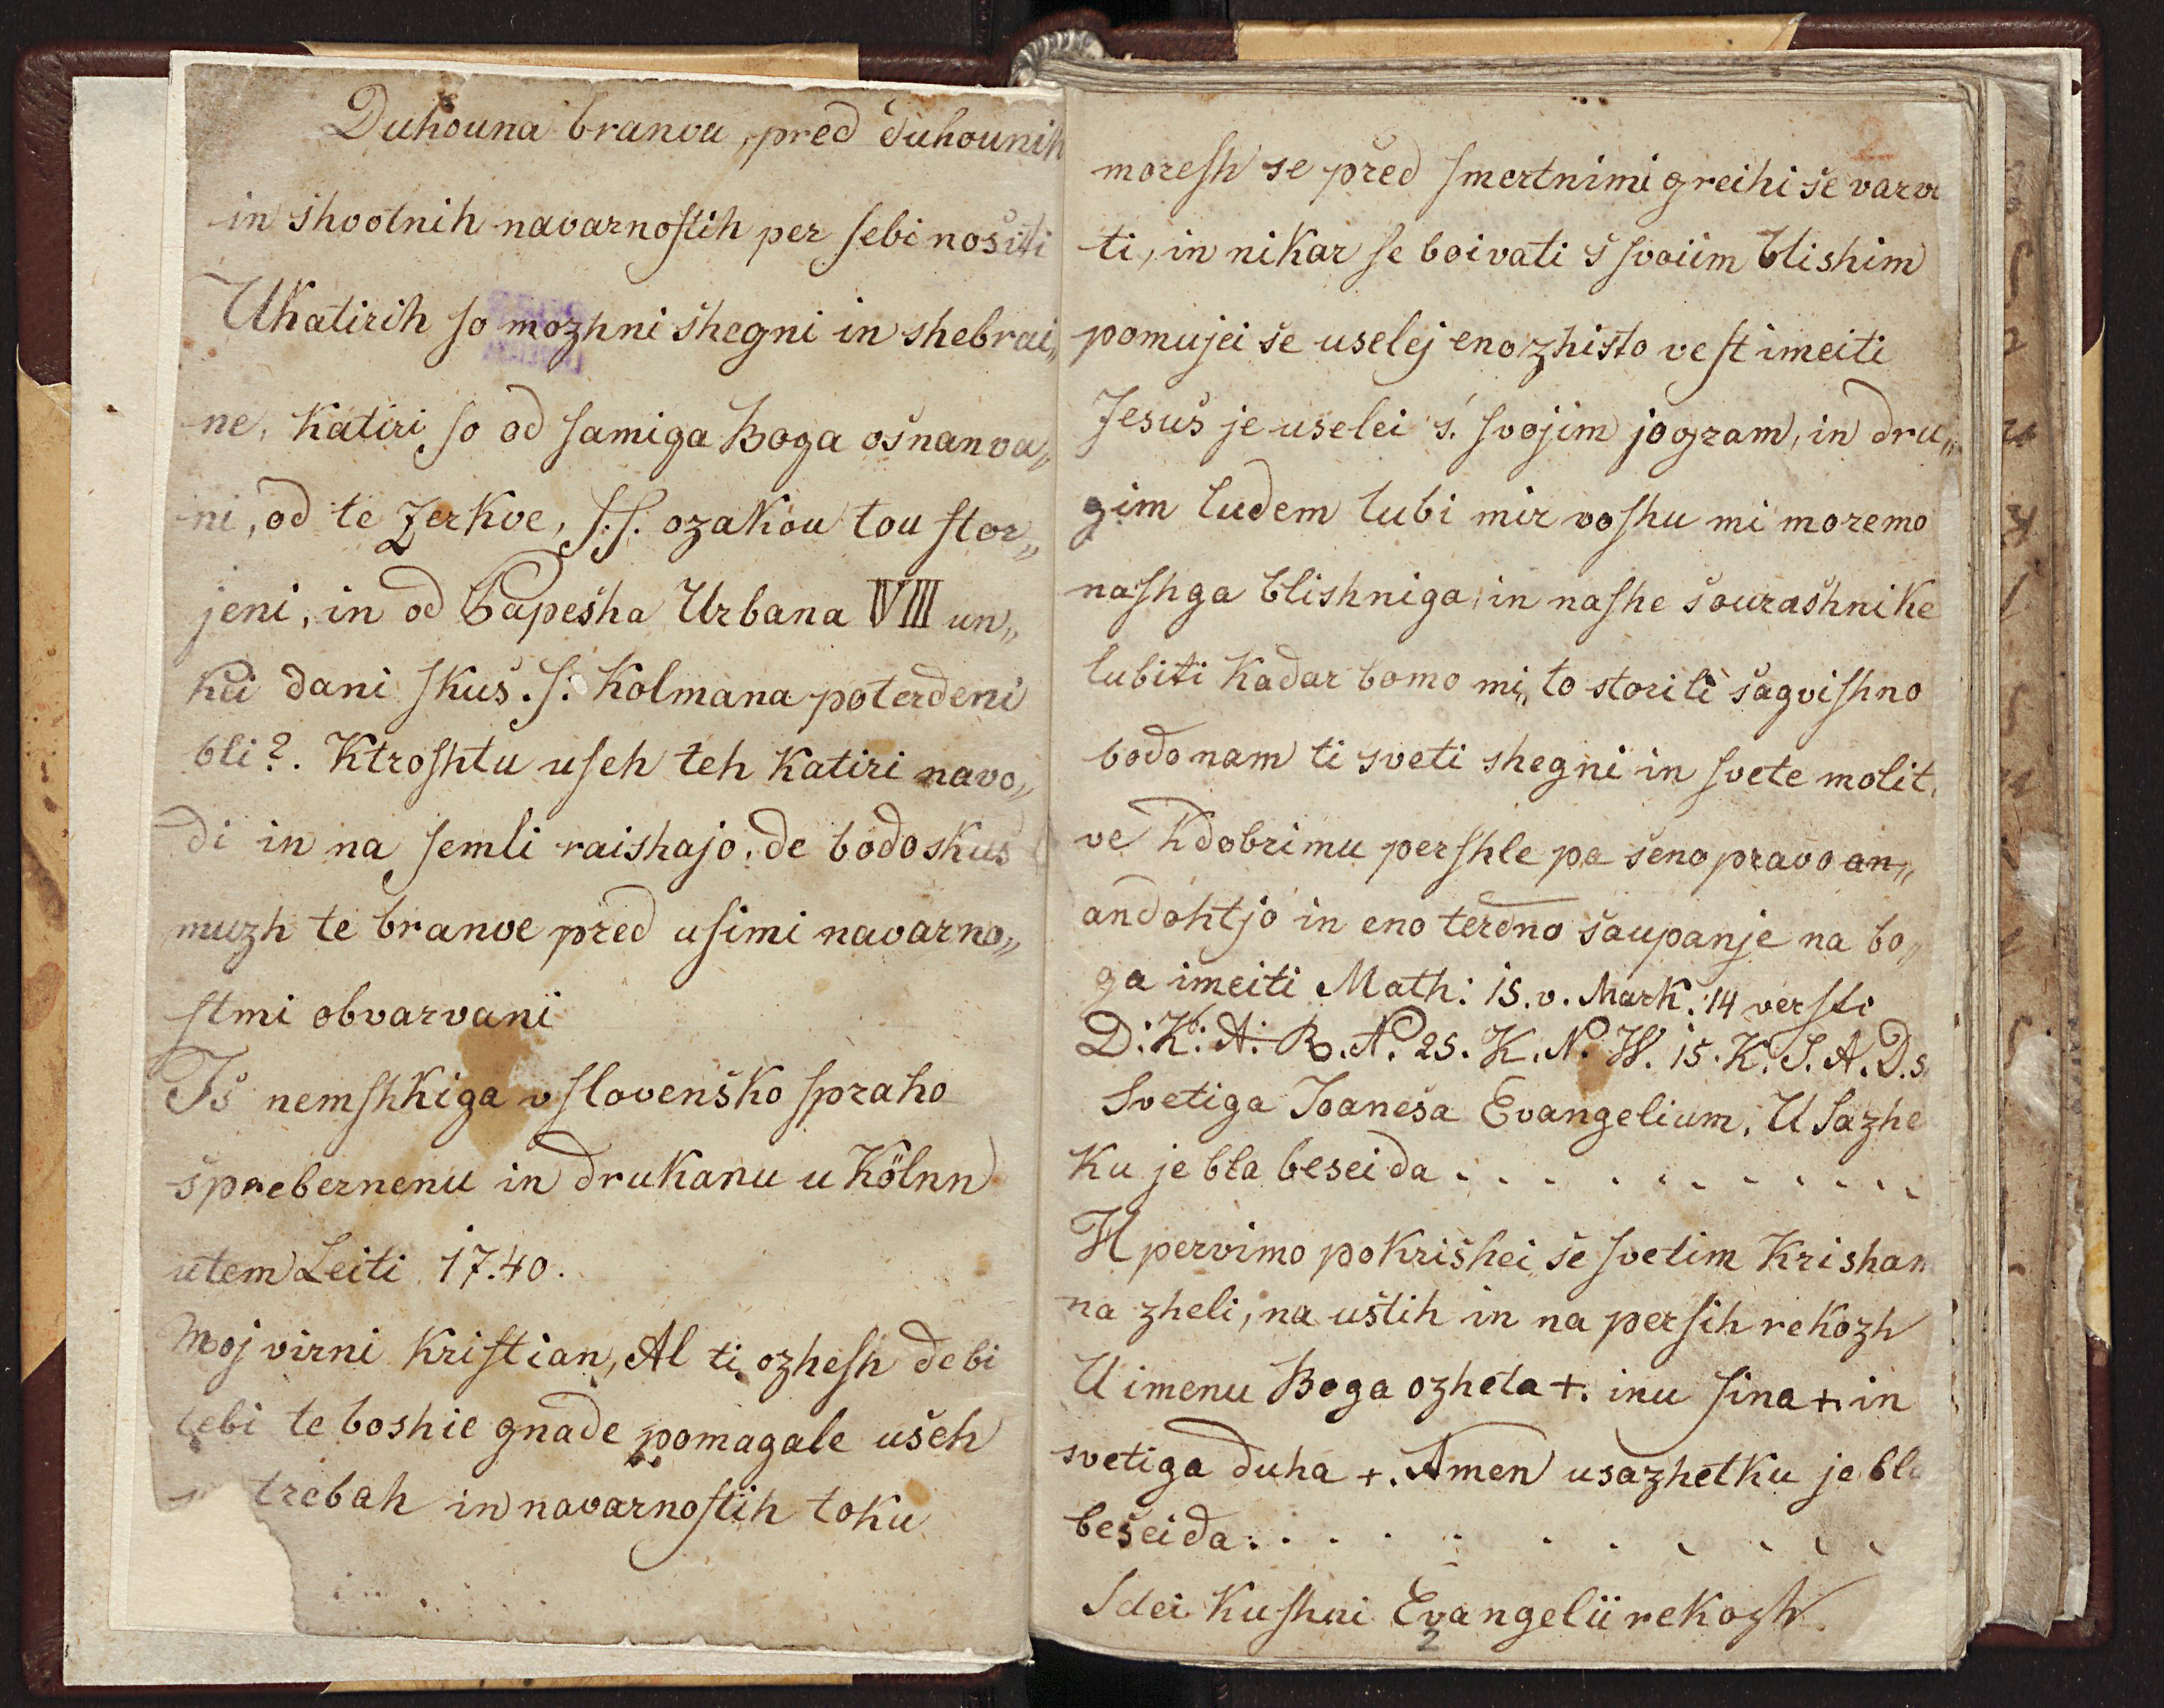 Duhouna branva, pred duhounih
in shvotnih navarnoſtih per ſebi noſiti
Ukatirih ſo mozhni shegni in shebrai„
ne, Katiri ſo od ſamiga Boga osnanva„
ni, od te Zerkve, ſ.ſ. ozakou tou ſtor„
jeni, in od Papesha Urbana VIII un„
kai dani ſkus. ſ: Kolmana poterdeni
bli?. Ktroſhtu uſeh teh Katiri navo„
di in na ſemli raishajo, de bodo skus
muzh te branve pred uſimi navarno„
ſtmi obvarvani
Is nemſhkiga v ſlovensko ſpraho
sprebernenu in drukanu u Kölnn
utem Leiti 17.40.
Moj virni Kriſtian, Al ti ozheſh debi
tebi te boshie gnade pomagale useh
trebah in navarnoſtih toku
2
moreſh se pred ſmertnimi greihi se varva
ti, in nikar ſe boivati s ſvoiim blishim
pomujei se uselej eno zhisto veſt imeiti
Jesus je uselei s. ſvojim jogram, in dru„
gim ludem lubi mir voſhu mi moremo
naſhga blishniga, in naſhe sourashnike
lubiti Kadar bomo mi, to storili sagviſhno
bodo nam ti sveti shegni in ſvete molit,
ve Kdobrimu perſhle pa seno pravo an„
andohtjo in eno terdno saupanje na bo„
ga imeiti Math: 15. v. Mark: 14 verſti
D: K: A: B. N. 25. K. N. W. 15. K. S. A. D. s
Svetiga Joanesa Evangelium, U Sazhe
Ku je bla beseida . . . . . . . . . . . .
H pervimo pokrishei se ſvetim Krisham
na zheli, na ustih in na perſih rekozh
U imenu Boga ozheta +. inu ſina +. in
svetiga duha +. Amen usazhetku je bla
beseida . . . . . . . . . . .
Sdei Kuſhni Evangelii rekozh
2